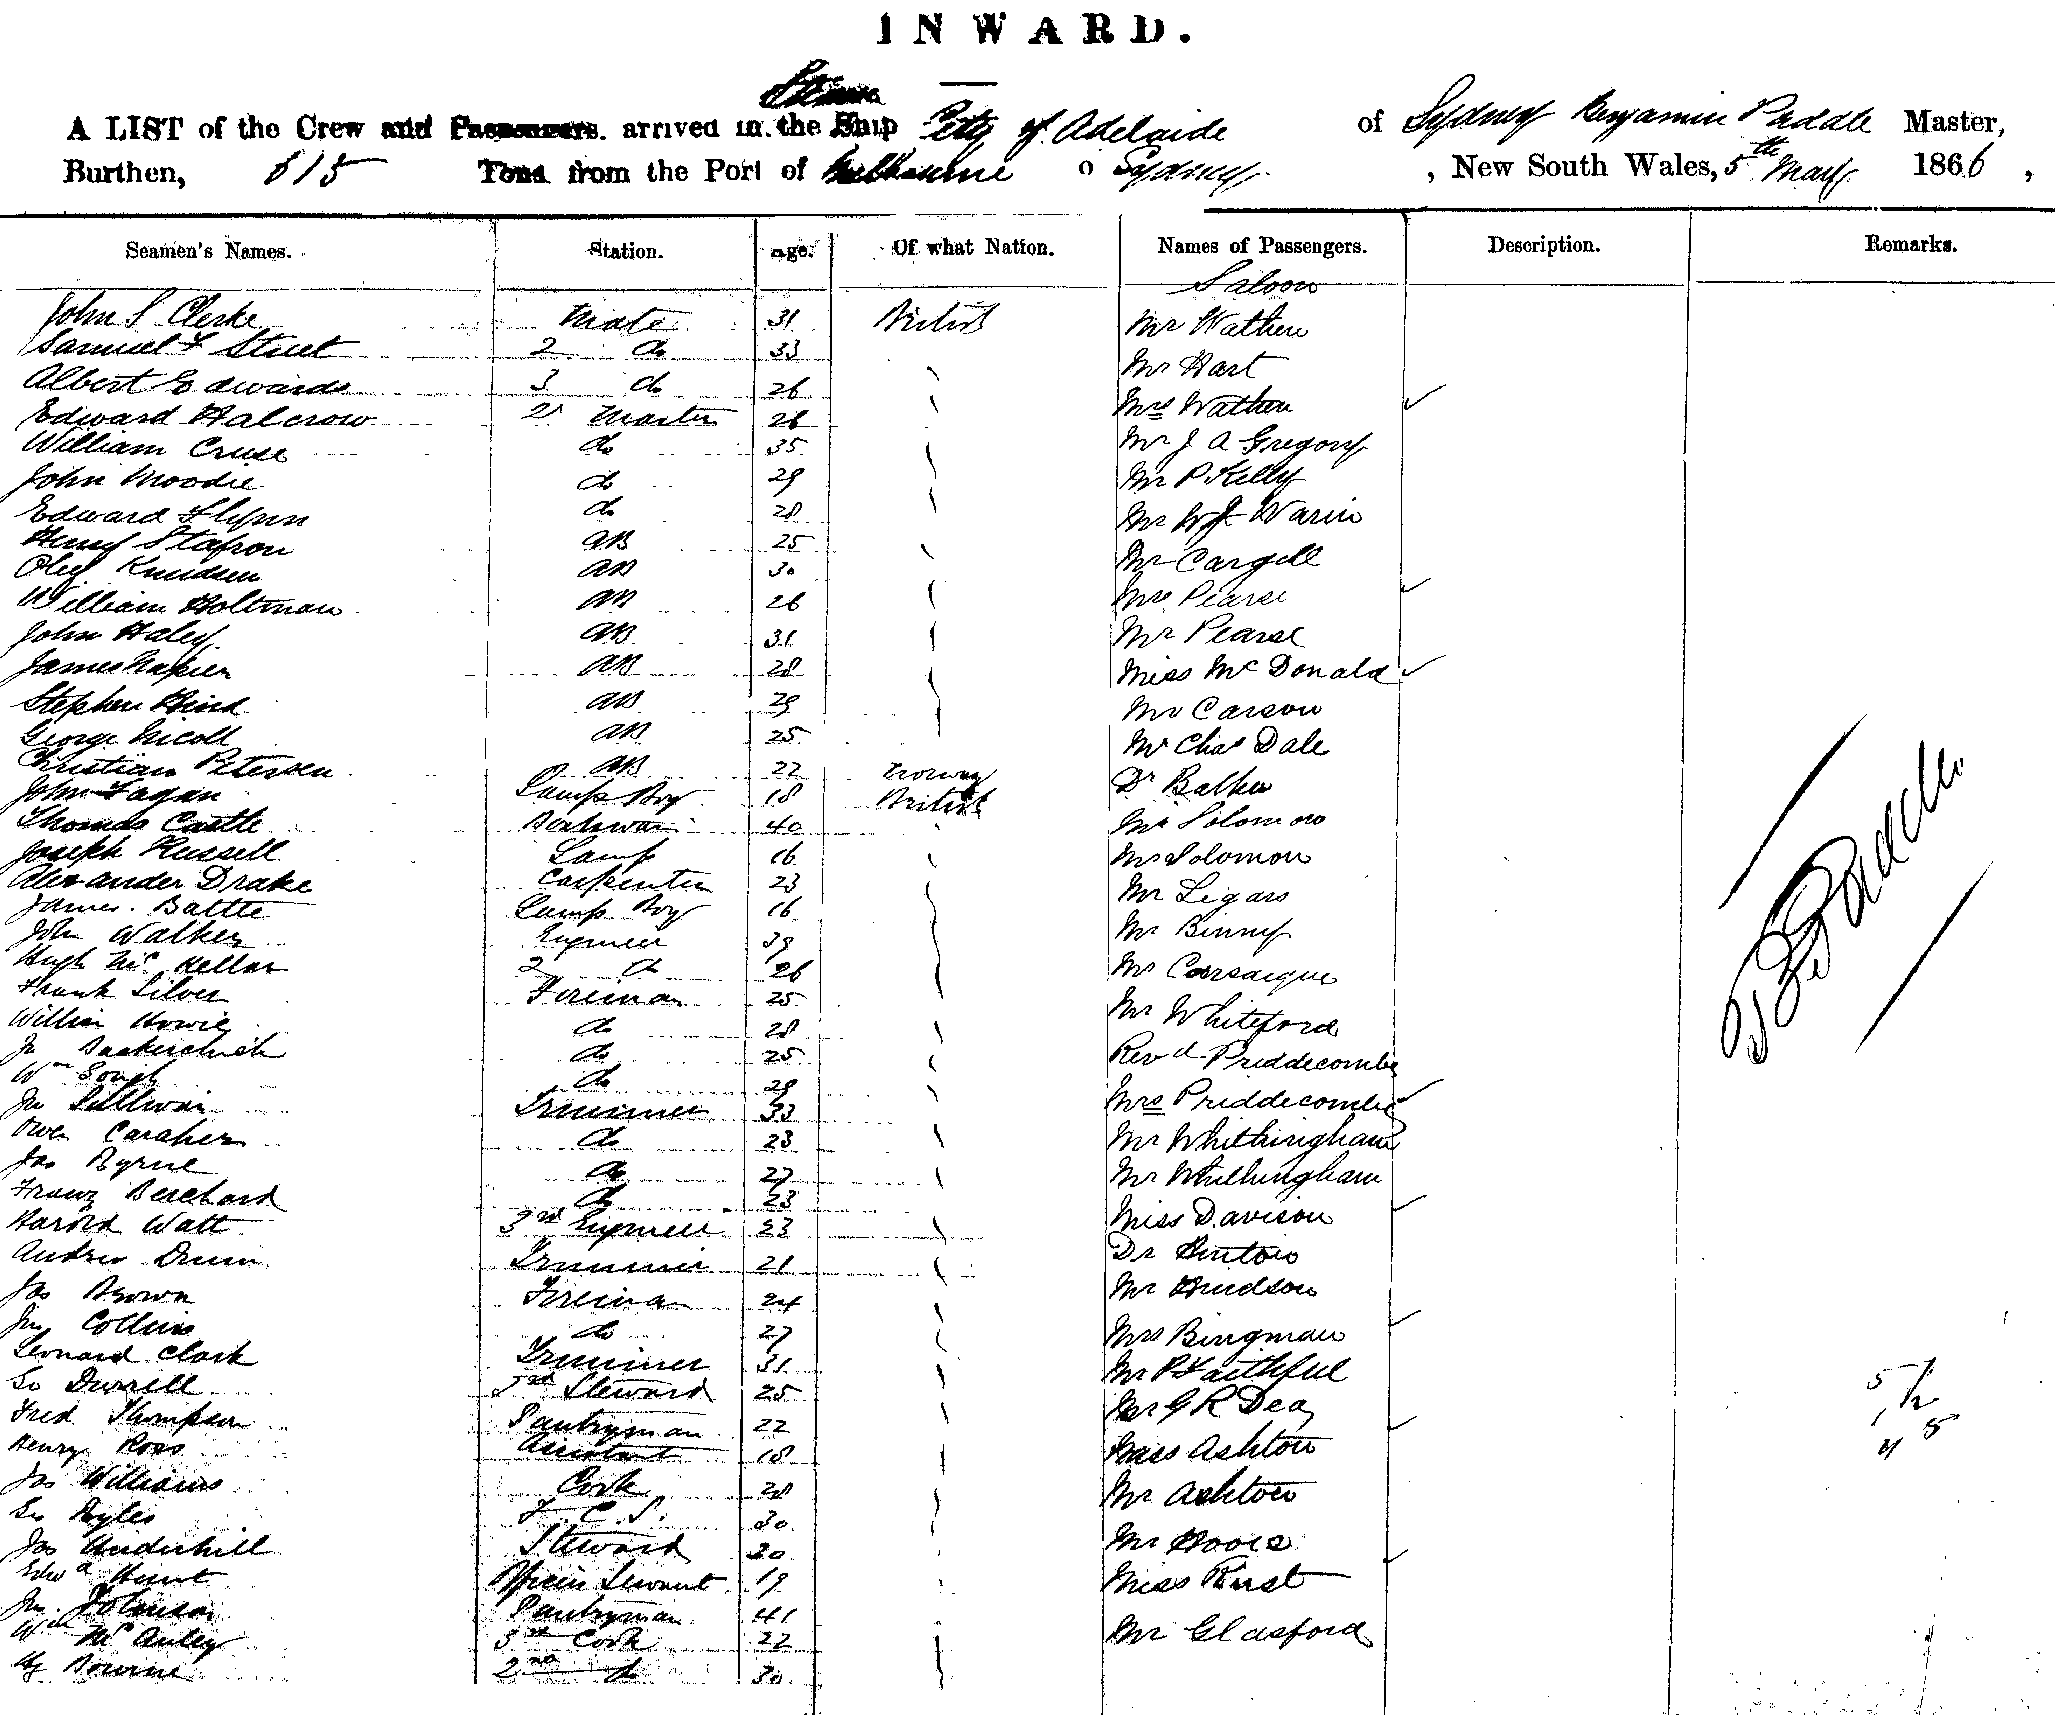 INWARD.
Steam
A LIST of the Crew and Passengers arrived in the Ship City of Adelaide of Sydney Benjamin Paddle Master,
Burthen, 815 Tons from the Port of Melbourne o Sydney , New South Wales, 5th May 1866 ,
Seamen's Names. Station. age. Of what Nation. Names of Passengers. Description. Remarks.
Saloon
John S Clerke Mate 31 British Mr Wathen
Samuel F Street 2 do 33 Mr Hart
Albert Edwards 3 do 26 Mrs Wathen
Edward Halcrow 2r Master 26 Mr J A Gregory
William Cruse do 35 Mr P Kelly
John Moodie do 29 Mr W J Warin
Edward Flynn do 28 Mr Cargill
Henry Stafron AB 25 Mrs Pearse
Oley Knudsen AB 30 Mr Pearse
William Holtman AB 26 Miss McDonald
John Haley AB 31 Mr Carson
James Napier AB 28 Mr Chas Dale
Stephen Hird AB 29 Dr Balken
George Nicoll AB 25 Mr Solomon
Christian Petersen AB 22 Norway Mrs Solomon
John Fagan Lamp Boy 18 British Mr Ligars
Thomas Castle Boatswain 40 Mr Binny
Joseph Russell Lamp 16
Alexander Drake Carpenter 23 Mr Whiteford
James Battte Lamp Boy 16 Revd Priddecombe
John Walker Engineer 39 Mrs Priddecombe
Hugh McKellar 2 do 26 Mr Whithingham
Frank Silver Fireman 25 Mr Whithingham
William Howie do 28 Miss Davison
Jn do 25 Dr Hinton
Wm Gough do 29 Mr Hudson
Jn Sullivan Trimmer 33 Mrs Bingman
Owen Caraher do 23 Mr P Faithful
Jas Byrne do 27 Mr G R Dea
Franz Berchard do 23 Miss Ashton
Harold Watt 3rd Engineer 23 Mr Ashton
Andrew Dunn Trimmer 21 Mr Hoare
Jas Brown Fireman 24 Miss Rust
Jn Collins do 27 Mr Glasford
Leonard Clark Trimmer 31
Geo Durrell 2nd Steward 25
Fred Thompson Pantryman 22
Henry Ross Assistant 18
Jas Williams Cook 28
Geo Ryles F. C. S. 30
Jas Underhill Steward 30
Edwd Hunt Servant 19
Jn Johnson Pantryman 41
Wm McAuley 3rd Cook 22
Hy Bourne 2nd do 30
B Paddle